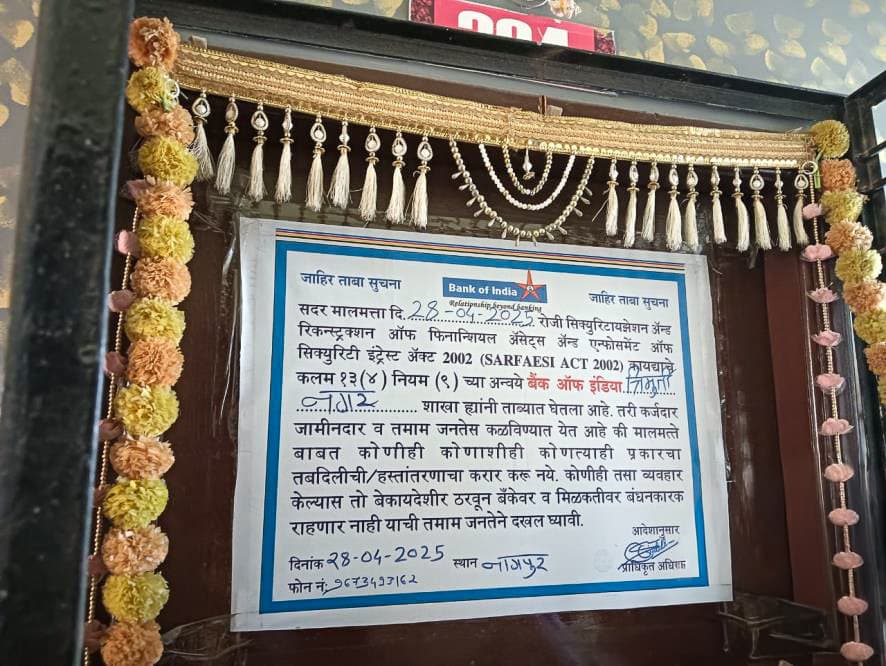 जाहिर ताबा सुचना
Bank of India
Relationship beyond banking
जाहिर ताबा सुचना
सदर मालमत्ता दि. 28-04-2025 रोजी सिक्युरिटायझेशन ॲन्ड
रिकन्स्ट्रक्शन ऑफ फिनान्शियल ॲसेट्स ॲन्ड एन्फोसमेंट ऑफ
सिक्युरिटी इंट्रेस्ट ॲक्ट 2002 (SARFAESI ACT 2002) कायद्याचे
कलम १३(४) नियम (९) च्या अन्वये बैंक ऑफ इंडिया त्रिमुर्ती
नगर शाखा ह्यांनी ताब्यात घेतला आहे. तरी कर्जदार
जामीनदार व तमाम जनतेस कळविण्यात येत आहे की मालमत्ते
बाबत कोणीही कोणाशीही कोणत्याही प्रकारचा
तबदिलीची/हस्तांतरणाचा करार करू नये. कोणीही तसा व्यवहार
केल्यास तो बेकायदेशीर ठरवून बँकेवर व मिळकतीवर बंधनकारक
राहणार नाही याची तमाम जनतेने दखल घ्यावी.
आदेशानुसार
दिनांक 28-04-2025 स्थान नागपुर
प्राधिकृत अधिकारी
फोन नं: